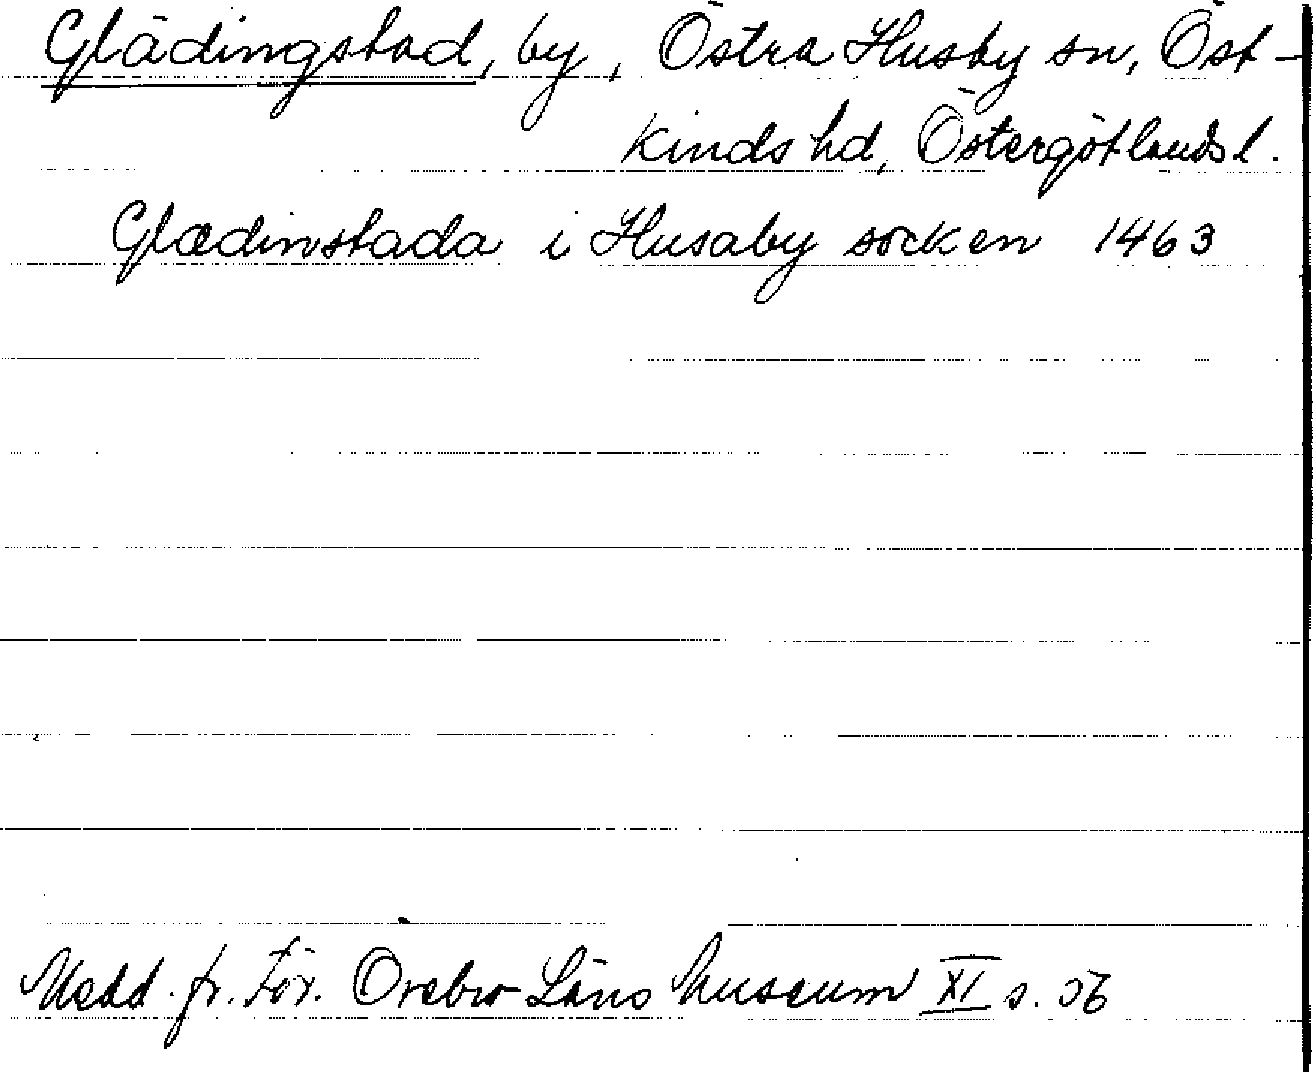 Glädingstad, by, Östra Husby sn, Öst-
kinds hd, Östergötlands l.
Glædinstada i Husaby socken 1463
Medd. fr. För. Örebro Läns Museum XI s. 56